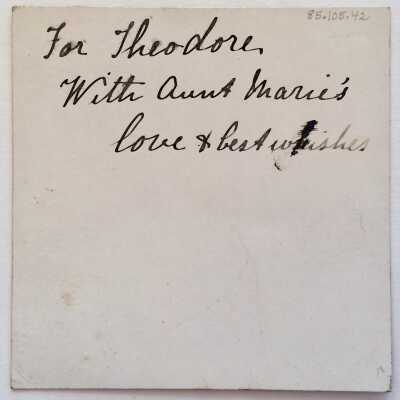 85.105.42
For Theodore,
With Aunt Marie's
love & best wishes